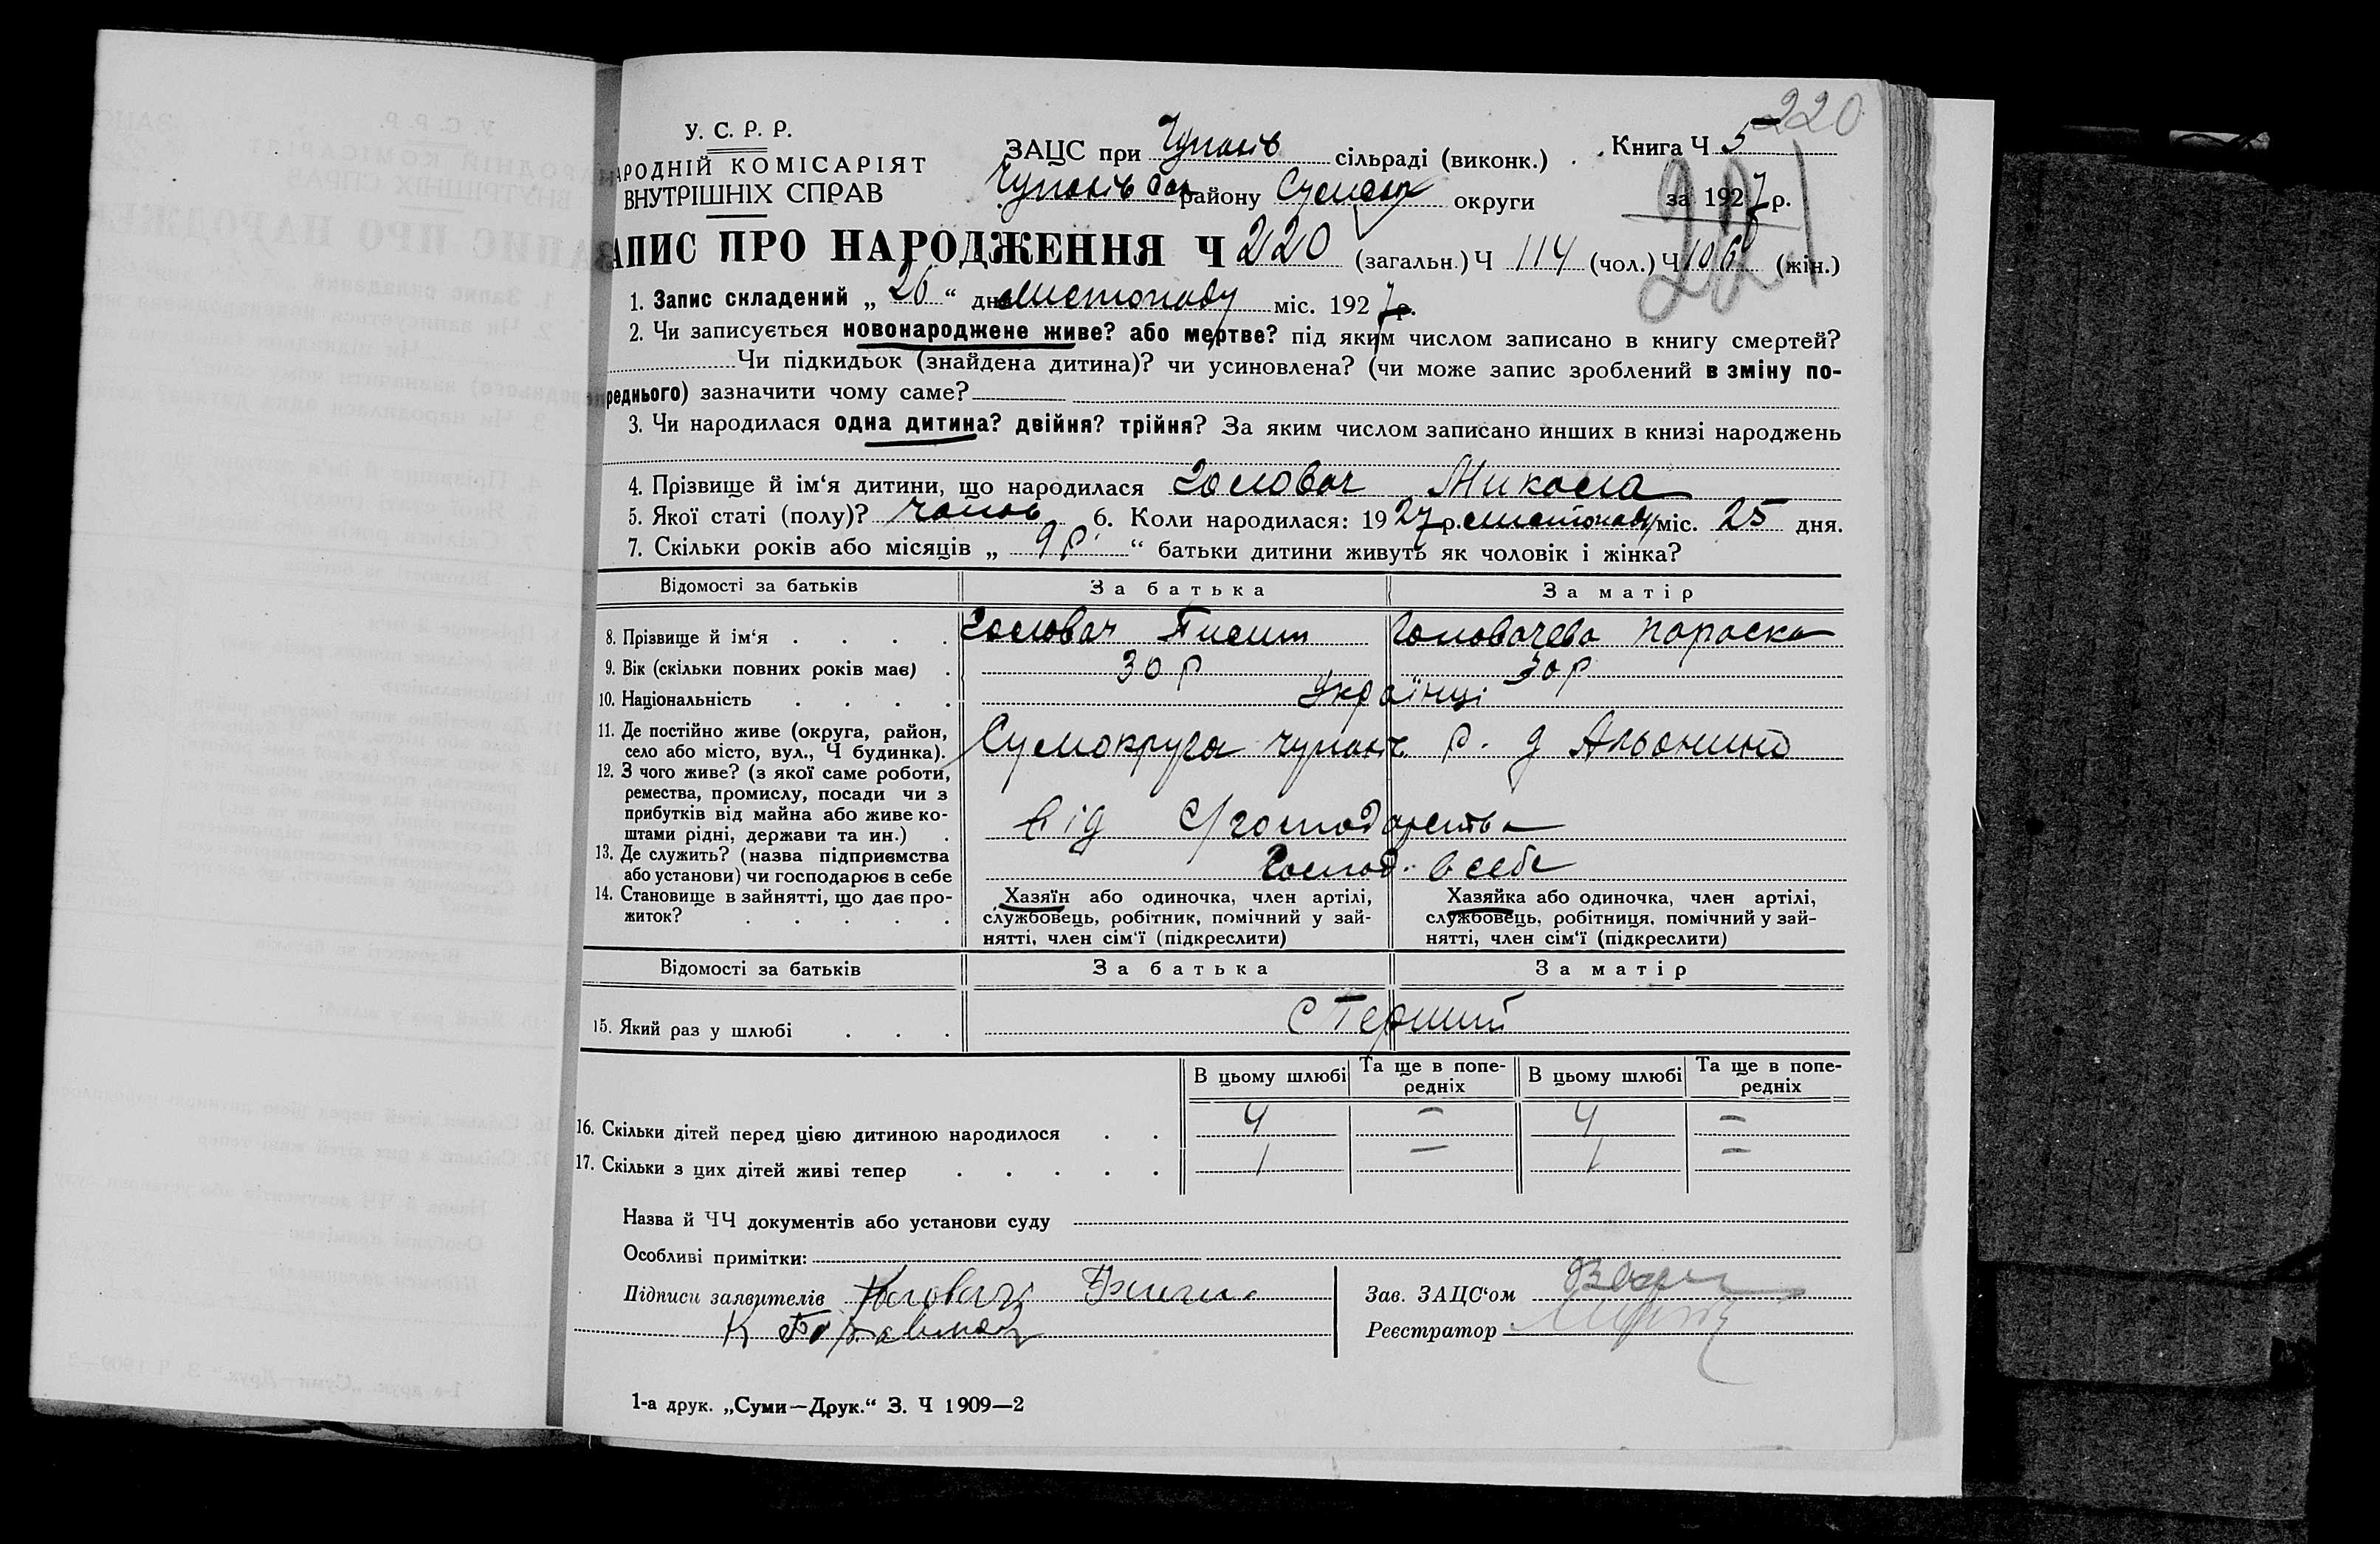 220
У. С. Р. Р.
АРОДНІЙ КОМІСАРІЯТ
ВНУТРІШНІХ СПРАВ
ЗАЦС при сільраді (виконк.) . . Книга Ч 5
району округи за 1927 р.
221
АПИС ПРО НАРОДЖЕННЯ Ч 220 (загальн.) Ч 114 (чол.) Ч 106 (жін.)
1. Запис складений „ 26 “ дня листопаду міс. 1927 р.
2. Чи записується новонароджене живе? або мертве? під яким числом записано в книгу смертей?
Чи підкидьок (знайдена дитина)? чи усиновлена? (чи може запис зроблений в зміну по-
реднього) зазначити чому саме?
3. Чи народилася одна дитина? двійня? трійня? За яким числом записано инших в книзі народжень
4. Прізвище й ім‘я дитини, що народилася Головач Микола
5. Якої статі (полу)? чолов 6. Коли народилася: 1927 р. листопаду міс. 25 дня.
7. Скільки років або місяців „ 9 р. “ батьки дитини живуть як чоловік і жінка?
Відомості за батьків За батька За матір
8. Прізвище й ім‘я . . . . Головач Пилип Головачева Параска
9. Вік (скільки повних років має) . 30 р 30 р
10. Національність . . . . Українці
11. Де постійно живе (округа, район,
село або місто, вул., Ч будинка). Сумокруга р. д
12. З чого живе? (з якої саме роботи,
ремества, промислу, посади чи з
прибутків від майна або живе ко-
штами рідні, держави та ин.) . від с/господарства
13. Де служить? (назва підприємства
або установи) чи господарює в себе Господ. в себе
14. Становище в зайнятті, що дає про-
житок? . . . . .
Хазяїн або одиночка, член артілі,
службовець, робітник, помічний у зай-
нятті, член сім‘ї (підкреслити)
Хазяйка або одиночка, член артілі,
службовець, робітниця, помічний у зай-
нятті, член сім‘ї (підкреслити)
Відомості за батьків За батька За матір
15. Який раз у шлюбі . . . Перший
В цьому шлюбі Та ще в попе-редніх В цьому шлюбі Та ще в попе-редніх
16. Скільки дітей перед цією дитиною народилося . . 4 – 4 –
17. Скільки з цих дітей живі тепер . . . . . 1 – 1 –
Назва й ЧЧ документів або установи суду
Особливі примітки:
Підписи заявителів
Зав. ЗАЦС‘ом
Реєстратор
1-а друк. „Суми—Друк.“ З. Ч 1909—2